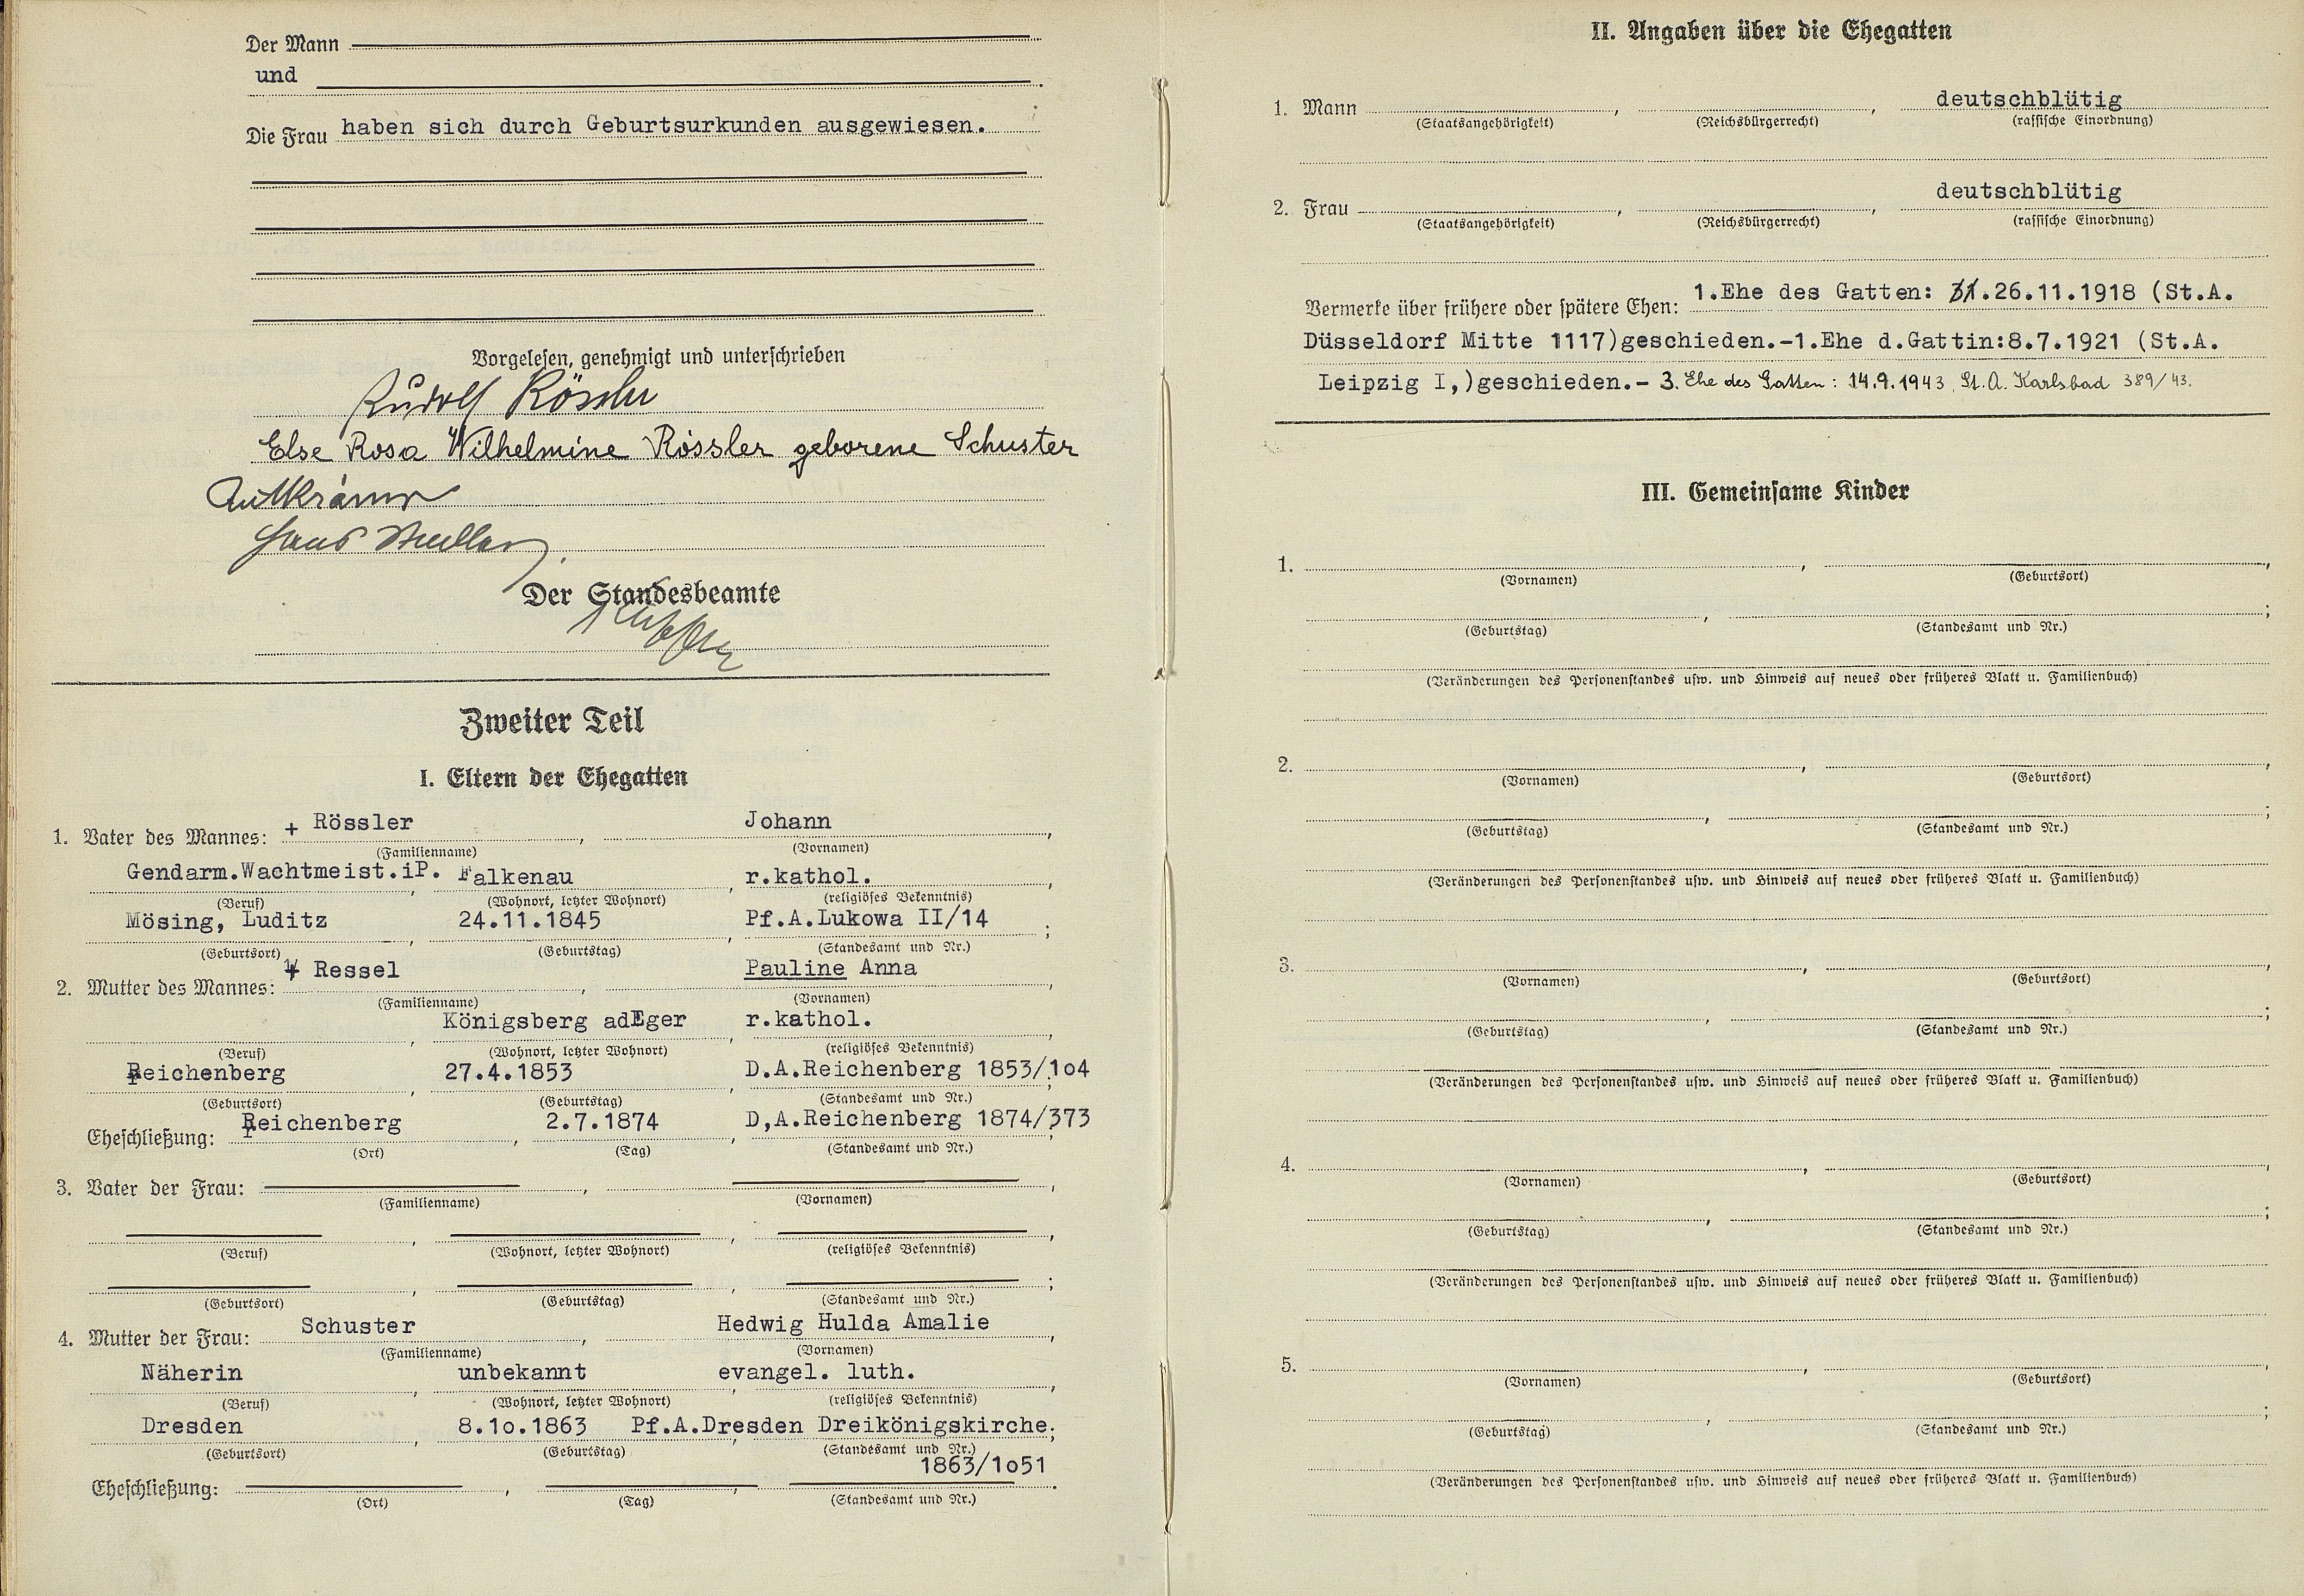 Der Mann
und
Die Frau haben sich durch Geburtsurkunden ausgewiesen.
Vorgelesen, genehmigt und unterschrieben
Rudolf Rössler
Else Rosa Wilhelmine Rössler geborene Schuster
Hans
Der Standesbeamte
Zweiter Teil
I. Eltern der Ehegatten
1. Vater des Mannes: + Rössler, Johann,
(Familienname) (Vornamen)
Gendarm.Wachtmeist.iP., Falkenau, r.kathol.,
(Beruf) (Wohnort, letzter Wohnort) (religiöses Bekenntnis)
Mösing, Luditz, 24.11.1845, Pf.A.Lukowa II/14;
(Geburtsort) (Geburtstag) (Standesamt und Nr.)
2. Mutter des Mannes: + Ressel, Pauline Anna,
(Familienname) (Vornamen)
, Königsberg adEger, r.kathol.,
(Beruf) (Wohnort, letzter Wohnort) (religiöses Bekenntnis)
Reichenberg, 27.4.1853, D.A.Reichenberg 1853/1o4;
(Geburtsort) (Geburtstag) (Standesamt und Nr.)
Eheschließung: Reichenberg, 2.7.1874, D,A.Reichenberg 1874/373,
(Ort) (Tag) (Standesamt und Nr.)
3. Vater der Frau: , ,
(Familienname) (Vornamen)
, , ,
(Beruf) (Wohnort, letzter Wohnort) (religiöses Bekenntnis)
, , ;
(Geburtsort) (Geburtstag) (Standesamt und Nr.)
4. Mutter der Frau: Schuster, Hedwig Hulda Amalie,
(Familienname) (Vornamen)
Näherin, unbekannt, evangel. luth.,
(Beruf) (Wohnort, letzter Wohnort) (religiöses Bekenntnis)
Dresden, 8.1o.1863 Pf.A.Dresden, Dreikönigskirche;
(Geburtsort) (Geburtstag) (Standesamt und Nr.)
1863/1o51
Eheschließung: , , .
(Ort) (Tag) (Standesamt und Nr.)
II. Angaben über die Ehegatten
1. Mann , , deutschblütig
(Staatsangehörigkeit) (Reichsbürgerrecht) (rassische Einordnung)
2. Frau , , deutschblütig
(Staatsangehörigkeit) (Reichsbürgerrecht) (rassische Einordnung)
Vermerke über frühere oder spätere Ehen: 1.Ehe des Gatten: 31.26.11.1918 (St.A.
Düsseldorf Mitte 1117)geschieden.-1.Ehe d.Gattin:8.7.1921 (St.A.
Leipzig I,)geschieden.- 3. Ehe des Gatten: 14.9.1943, St.A. Karlsbad 389/43.
III. Gemeinsame Kinder
1. , ,
(Vornamen) (Geburtsort)
, ;
(Geburtstag) (Standesamt und Nr.)
(Veränderungen des Personenstandes usw. und Hinweis auf neues oder früheres Blatt u. Familienbuch)
2. , ,
(Vornamen) (Geburtsort)
, ;
(Geburtstag) (Standesamt und Nr.)
(Veränderungen des Personenstandes usw. und Hinweis auf neues oder früheres Blatt u. Familienbuch)
3. , ,
(Vornamen) (Geburtsort)
, ;
(Geburtstag) (Standesamt und Nr.)
(Veränderungen des Personenstandes usw. und Hinweis auf neues oder früheres Blatt u. Familienbuch)
4. , ,
(Vornamen) (Geburtsort)
, ;
(Geburtstag) (Standesamt und Nr.)
(Veränderungen des Personenstandes usw. und Hinweis auf neues oder früheres Blatt u. Familienbuch)
5. , ,
(Vornamen) (Geburtsort)
, ;
(Geburtstag) (Standesamt und Nr.)
(Veränderungen des Personenstandes usw. und Hinweis auf neues oder früheres Blatt u. Familienbuch)